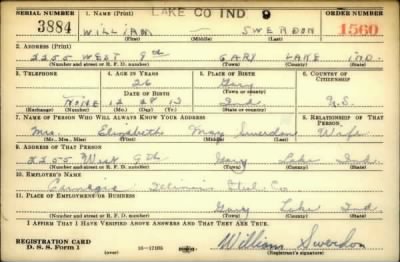 SERIAL NUMBER 1. NAME (Print) LAKE CO IND 9 ORDER NUMBER
3884 WILLIAM — SWERDON 1560
(First) (Middle) (Last)
2. ADDRESS (Print)
2255 WEST 9th GARY LAKE IND.
(Number and street or R. F. D. number) (Town) (County) (State)
3. TELEPHONE 4. AGE IN YEARS 5. PLACE OF BIRTH 6. COUNTRY OF CITIZENSHIP
26 Gary
DATE OF BIRTH (Town or county)
NONE 12 28 13 Ind U.S.
(Exchange) (Number) (Mo.) (Day) (Yr.) (State or country)
7. NAME OF PERSON WHO WILL ALWAYS KNOW YOUR ADDRESS 8. RELATIONSHIP OF THAT PERSON
Mrs. Elizabeth May Swerdon Wife
(Mr., Mrs., Miss) (First) (Middle) (Last)
9. ADDRESS OF THAT PERSON
2255 West 9th Gary Lake Ind.
(Number and street or R. F. D. number) (Town) (County) (State)
10. EMPLOYER'S NAME
Carnegie Illinois Steel Co
11. PLACE OF EMPLOYMENT OR BUSINESS
Gary Lake Ind.
(Number and street or R. F. D. number) (Town) (County) (State)
I AFFIRM THAT I HAVE VERIFIED ABOVE ANSWERS AND THAT THEY ARE TRUE.
REGISTRATION CARD
D. S. S. Form 1 16—17105 William Swerdon
(Registrant's signature)